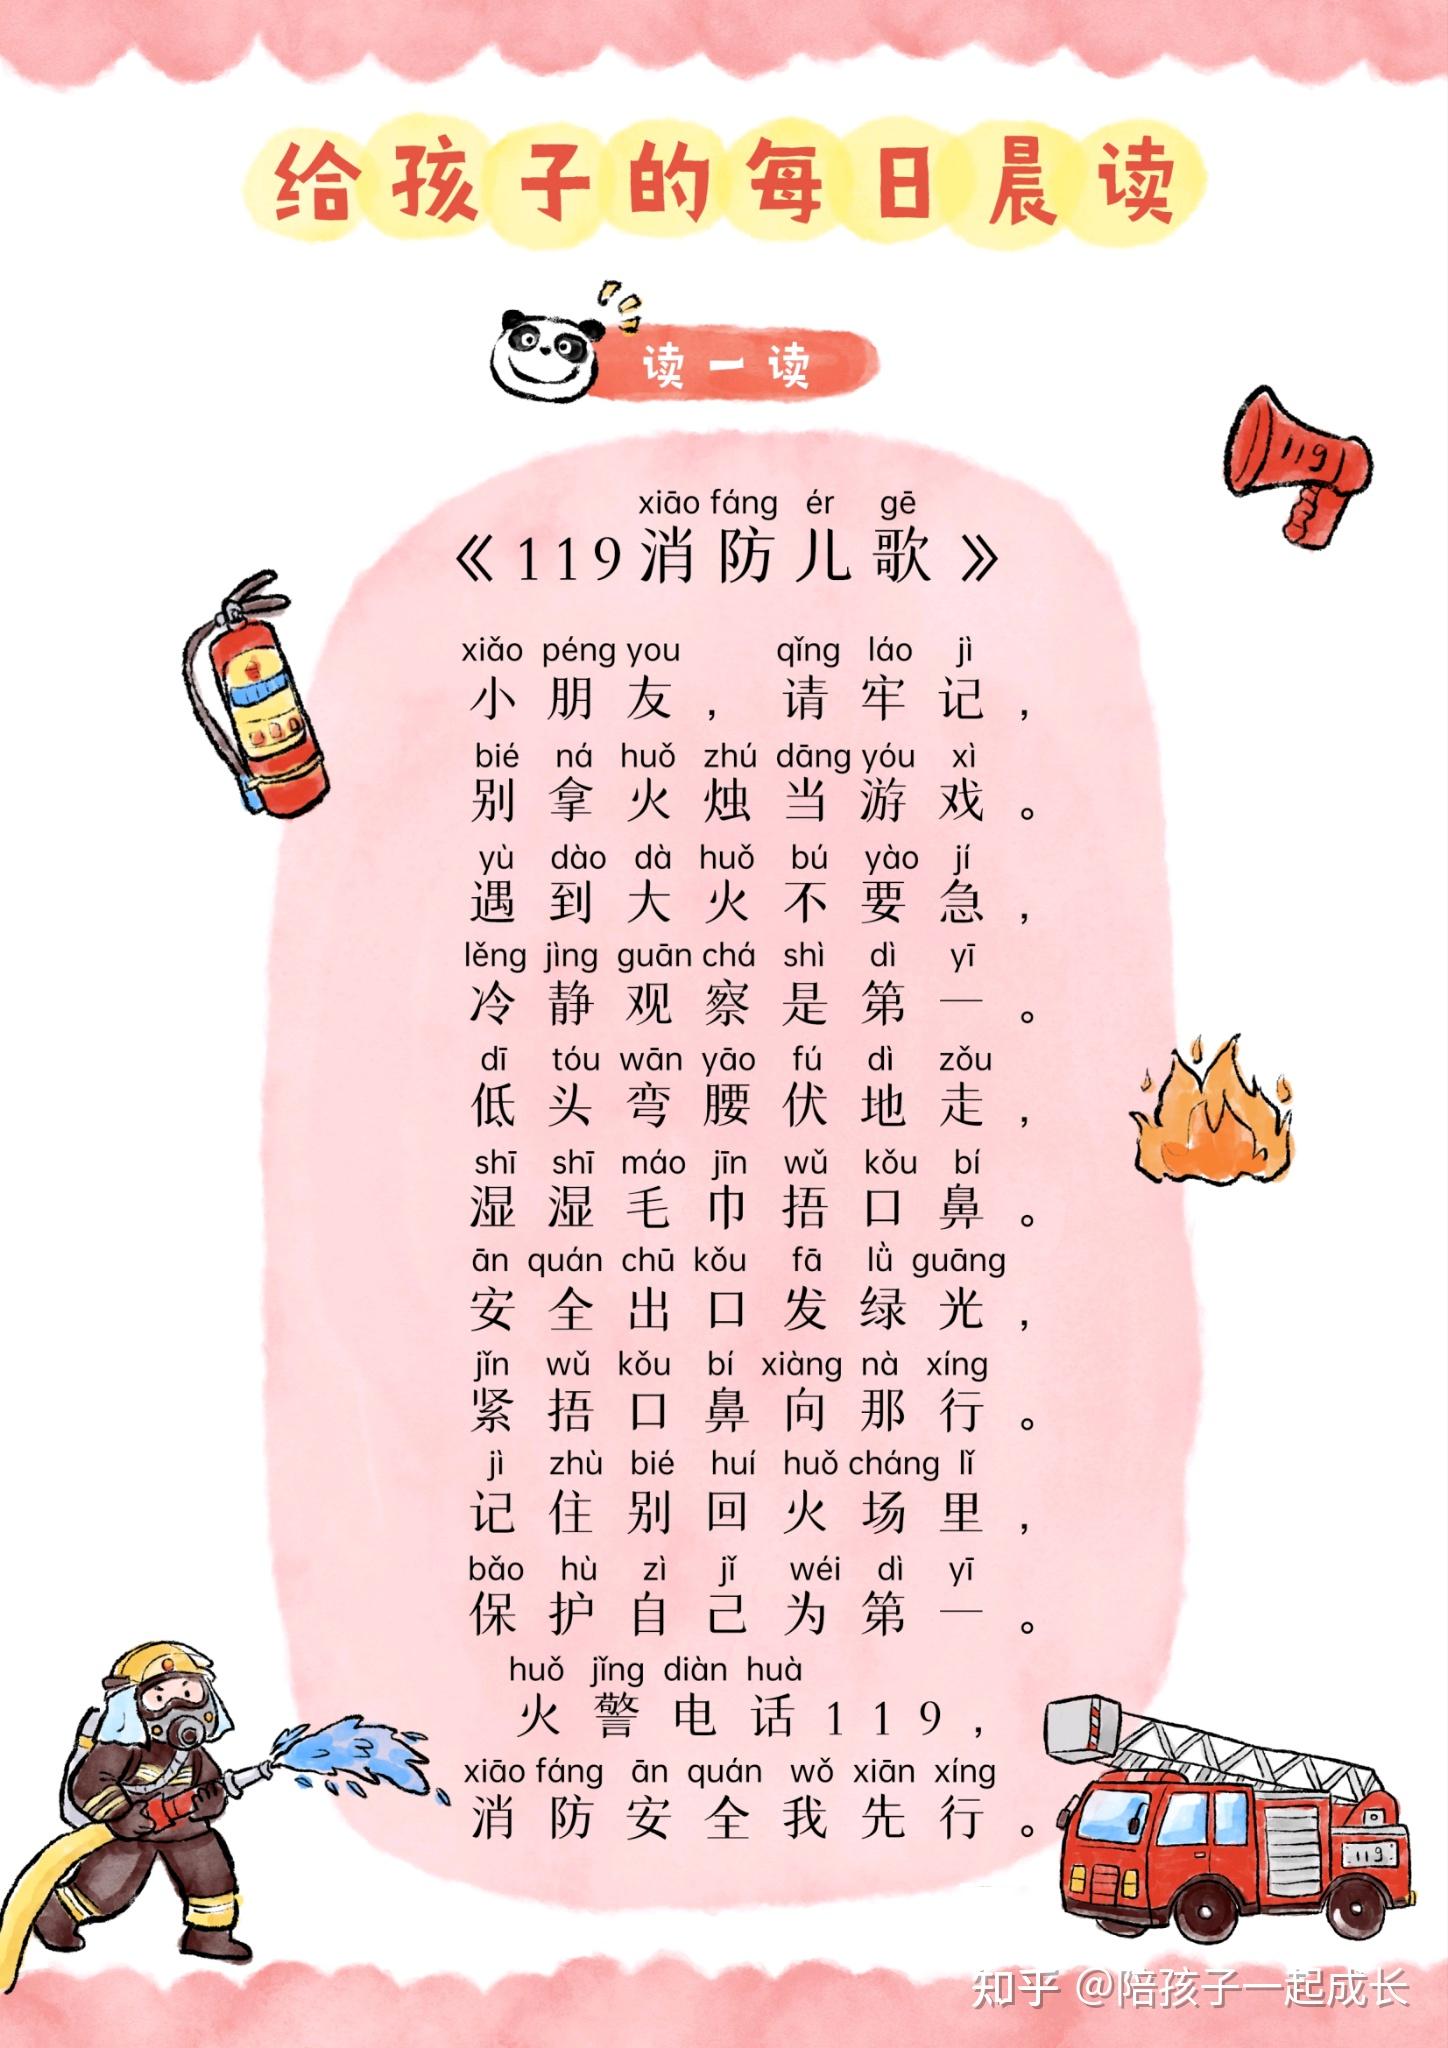 给孩子的每日晨读
读一读
119
xiāo fáng ér gē
《119消防儿歌》
xiǎo péng you qǐng láo jì
小朋友，请牢记，
bié ná huǒ zhú dāng yóu xì
别拿火烛当游戏。
yù dào dà huǒ bú yào jí
遇到大火不要急，
lěng jìng guān chá shì dì yī
冷静观察是第一。
dī tóu wān yāo fú dì zǒu
低头弯腰伏地走，
shī shī máo jīn wǔ kǒu bí
湿湿毛巾捂口鼻。
ān quán chū kǒu fā lǜ guāng
安全出口发绿光，
jǐn wǔ kǒu bí xiàng nà xíng
紧捂口鼻向那行。
jì zhù bié huí huǒ cháng lǐ
记住别回火场里，
bǎo hù zì jǐ wéi dì yī
保护自己为第一。
huǒ jǐng diàn huà
火警电话119，
xiāo fáng ān quán wǒ xiān xíng
消防安全我先行。
119
知乎 @陪孩子一起成长